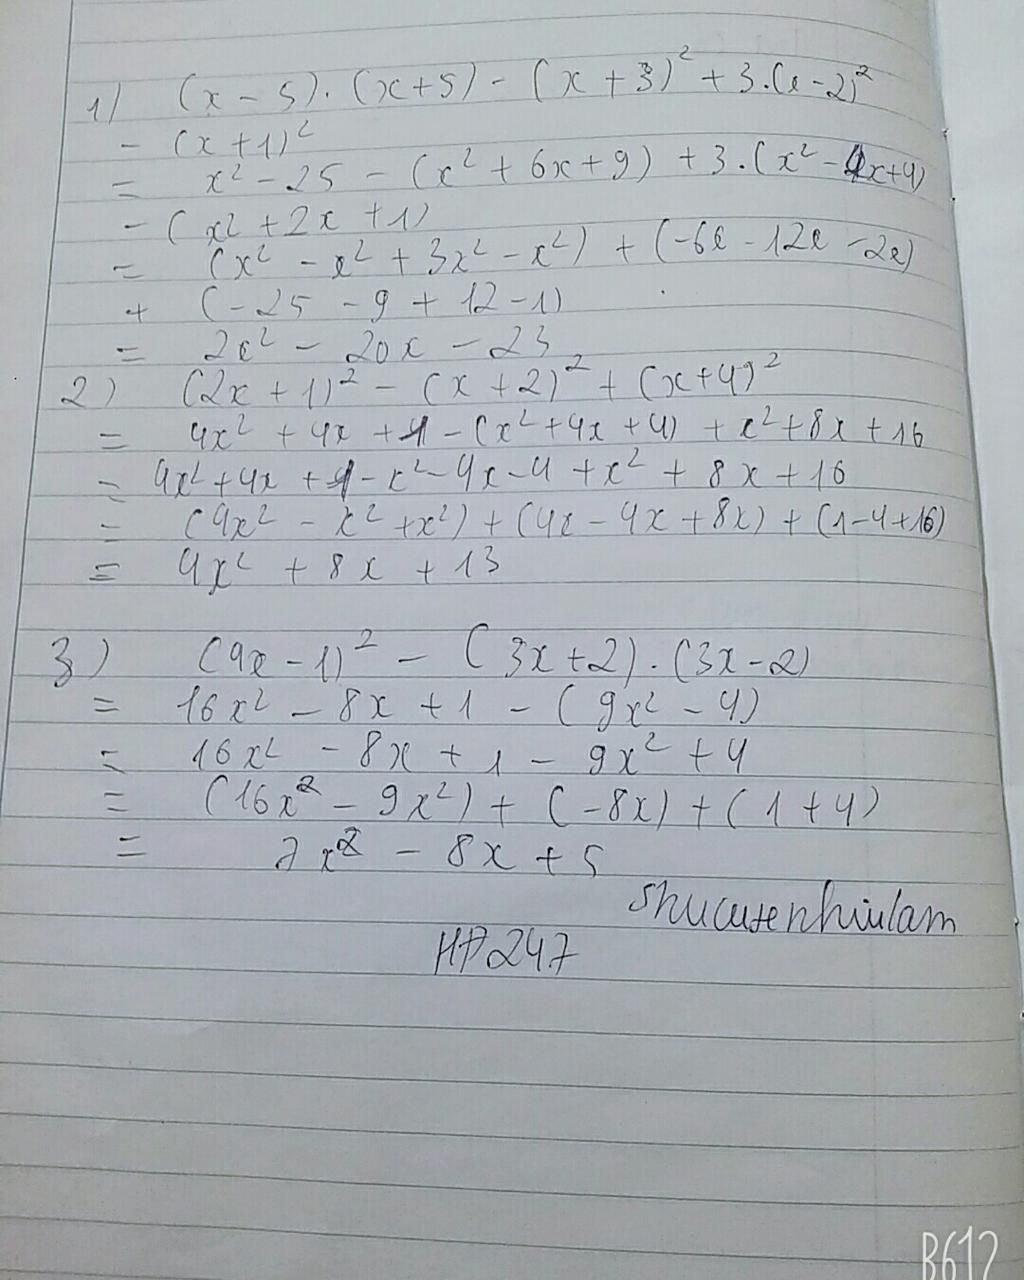 1) (x - 5).(x+5) - (x + 3)² + 3.(x-2)²
- (x+1)²
= x² - 25 - (x² + 6x + 9) + 3.(x² - 4x+4)
- (x² + 2x + 1)
= (x² - x² + 3x² - x²) + (-6x - 12x - 2x)
+ (-25 - 9 + 12 - 1)
= 2x² - 20x - 23
2) (2x + 1)² - (x + 2)² + (x+4)²
= 4x² + 4x + 1 - (x² + 4x + 4) + x² + 8x + 16
= 4x² + 4x + 1 - x² - 4x - 4 + x² + 8x + 16
= (4x² - x² + x²) + (4x - 4x + 8x) + (1-4+16)
= 4x² + 8x + 13
3) (4x - 1)² - (3x+2).(3x-2)
= 16x² - 8x + 1 - (9x² - 4)
= 16x² - 8x + 1 - 9x² + 4
= (16x² - 9x²) + (-8x) + (1 + 4)
= 7x² - 8x + 5
B612